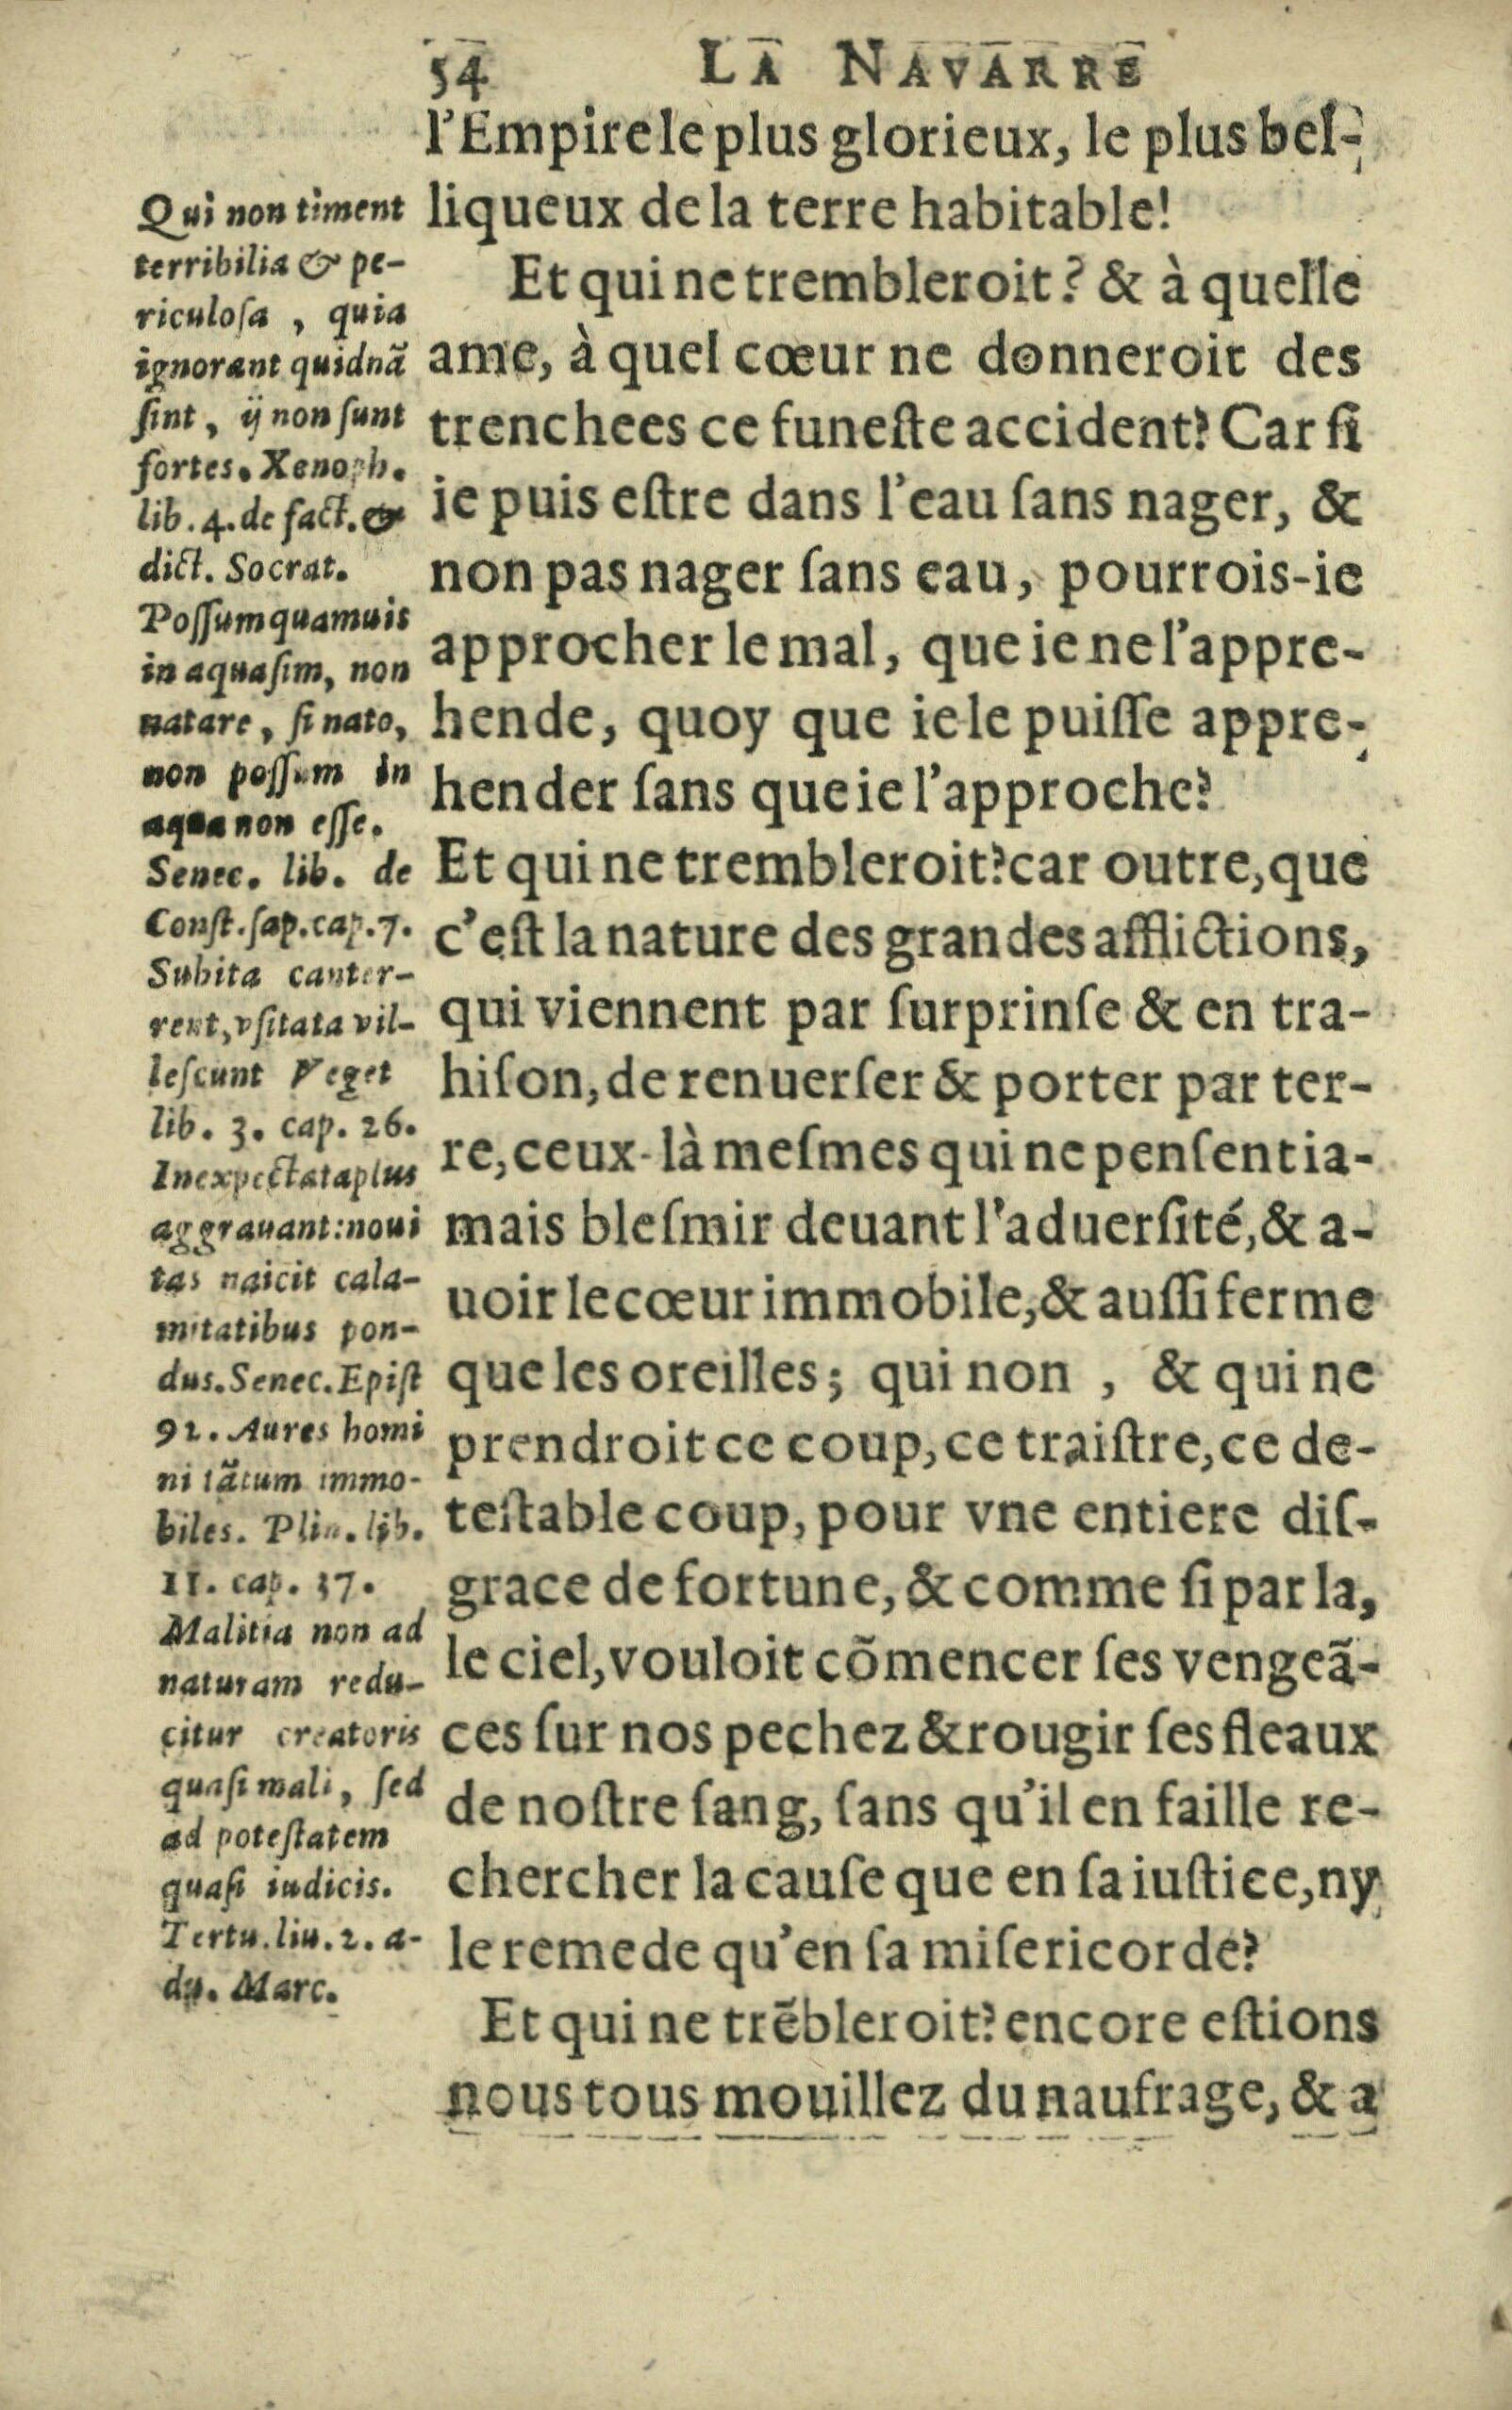 54 LA NAVARRE
l'Empire le plus glorieux, le plus bel-
liqueux de la terre habitable!
Et qui ne trembleroit? & à quelle
ame, à quel cœur ne donneroit des
trenchees ce funeſte accident? Car ſi
ie puis eſtre dans l'eau ſans nager, &
non pas nager ſans eau, pourrois-ie
approcher le mal, que ie ne l'appre-
hende, quoy que ie le puiſſe appre-
hender ſans que ie l'approche?
Et qui ne trembleroit? car outre, que
c'eſt la nature des grandes afflictions,
qui viennent par ſurprinſe & en tra-
hiſon, de renuerſer & porter par ter-
re, ceux-là meſmes qui ne penſent ia-
mais bleſmir deuant l'aduerſité, & a-
uoir le cœur immobile, & auſſi ferme
que les oreilles; qui non , & qui ne
prendroit ce coup, ce traiſtre, ce de-
teſtable coup, pour vne entiere diſ-
grace de fortune, & comme ſi par la,
le ciel, vouloit cõmencer ſes vengeã-
ces ſur nos pechez & rougir ſes fleaux
de noſtre ſang, ſans qu'il en faille re-
chercher la cauſe que en ſa iuſtice, ny
le remede qu'en ſa miſericorde?
Et qui ne trẽbleroit? encore eſtions
nous tous mouillez du naufrage, & a
Qui non timent
terribilia & pe-
riculoſa , quia
ignorant quidnã
ſint, ij non ſunt
fortes. Xenoph.
lib. 4. de fact. &
dict. Socrat.
Poſſum quamuis
in aqua ſim, non
natare, ſi nato,
non poſſum in
aqua non eſſe.
Senec. lib. de
Conſt. ſap. cap. 7.
Subita canter-
rent, vſitata vil-
leſcunt Veget
lib. 3. cap. 26.
Inexpectata plus
aggrauant: noui
tas naicit cala-
mitatibus pon-
dus. Senec. Epiſt
92. Aures homi
ni tãtum immo-
biles. Plin. lib.
11. cap. 37.
Malitia non ad
naturam redu-
citur creatoris
quaſi mali, ſed
ad poteſtatem
quaſi iudicis.
Tertu. liu. 2. a-
du. Marc.